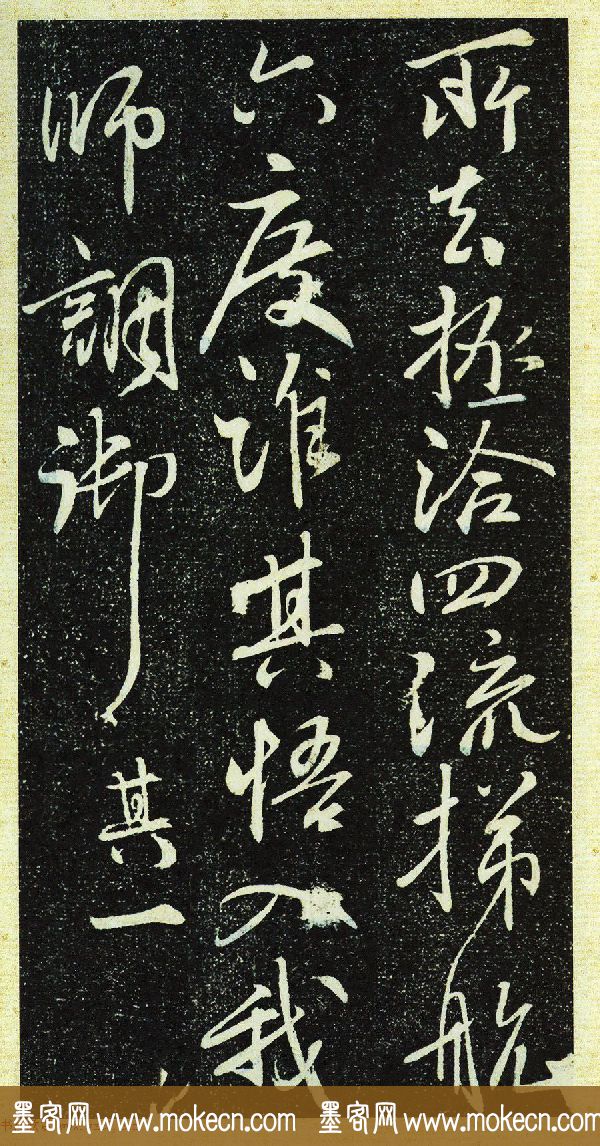 所去拯洽四流梯航
六度誰其悟入我
師調御 其一
墨客网 www.mokecn.com 墨客网 www.mokecn.com